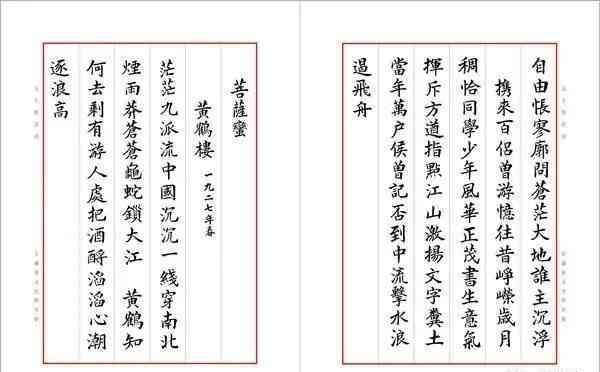 自由悵寥廓問蒼茫大地誰主沉浮
携來百侶曾游憶往昔崢嶸歲月
稠恰同學少年風華正茂書生意氣
揮斥方遒指點江山激揚文字糞土
當年萬户侯曾記否到中流擊水浪
遏飛舟
菩薩蠻
黃鶴樓 一九二七年春
茫茫九派流中國沉沉一綫穿南北
煙雨莽蒼蒼龜蛇鎖大江 黃鶴知
何去剩有游人處把酒酹滔滔心潮
逐浪高